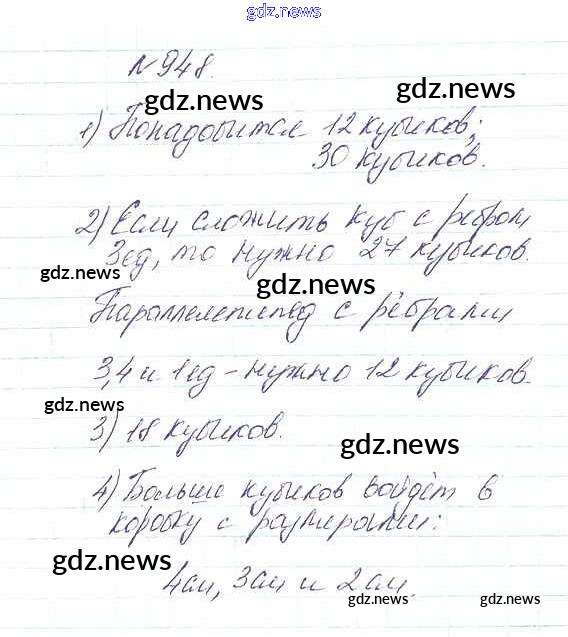 gdz.news
№ 948.
gdz.news
gdz.news
1) Понадобится 12 кубиков;
30 кубиков.
2) Если сложить куб с ребром
3 ед, то нужно 27 кубиков.
gdz.news
gdz.news
Параллелепипед с рёбрами
3,4 и 1 ед - нужно 12 кубиков.
gdz.news
3) 18 кубиков.
gdz.news
4) Больше кубиков войдёт в
коробку с размерами:
gdz.news
4 см, 3 см и 2 см.
gdz.news
gdz.news